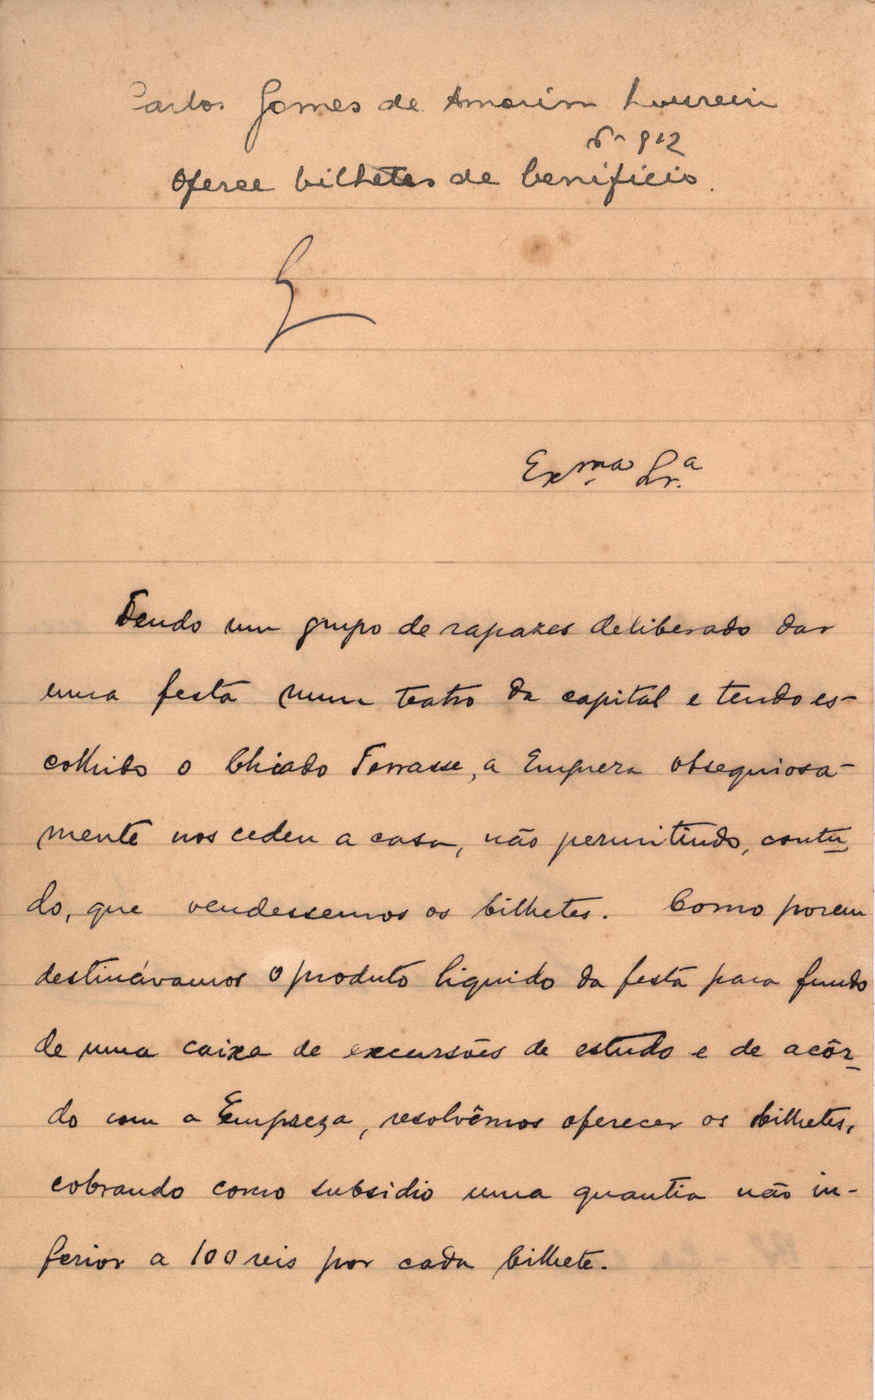 Carlos Gomes de Amorim Loureiro
912
Oferce bilhetes de benificio.
Exma Sr.a
Tendo um grupo de rapazes deliberado dar
uma festa num teatro da capital e tendo es-
colhido o Chiado Terrasse, a Empreza obsequiosa-
mente nos cedeu a casa, não permitindo, contu-
do, que vendessemos os bilhetes. Como porem
destinávamos o produto liquido da festa para fundo
de uma caixa de excursões de estudo e de acôr-
do com a Empreza, resolvêmos oferecer os bilhetes,
cobrando como subsidio uma quantia não in-
ferior a 100 reis por cada bilhete.